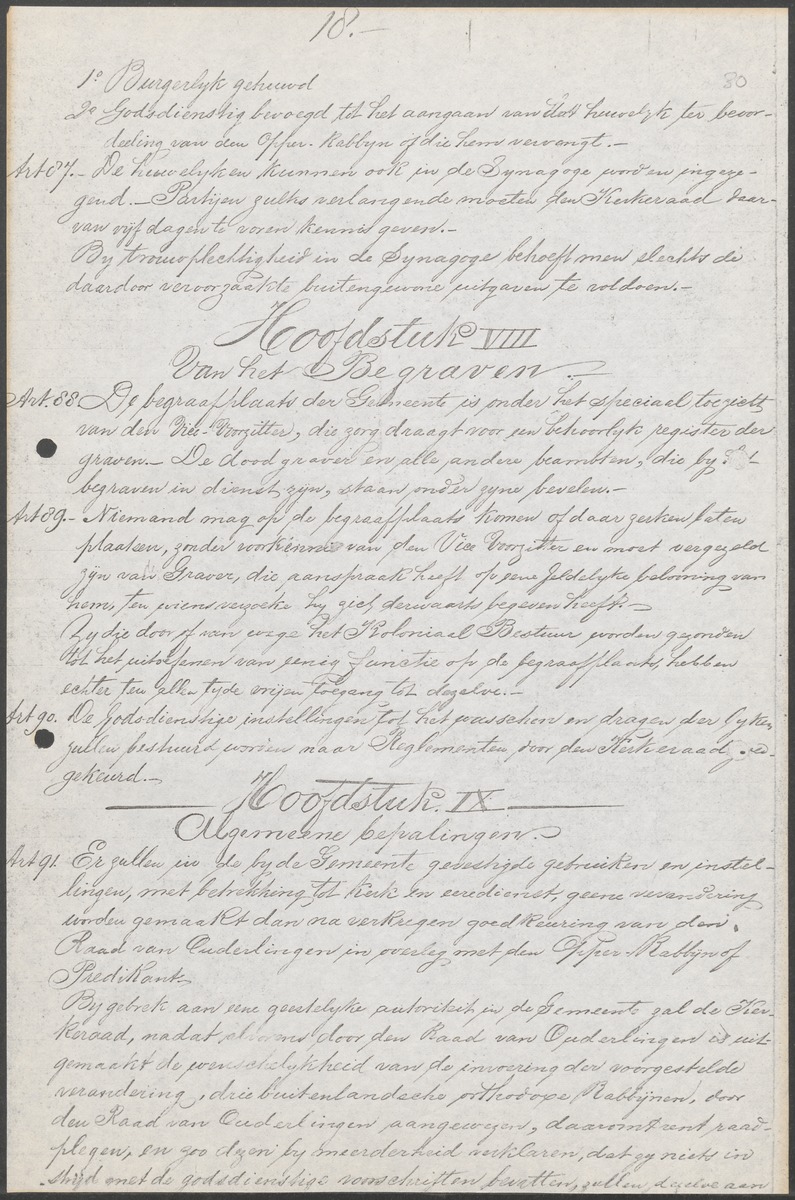 18.—
80
1° Burgerlyk gehuwd
2° Godsdienstig bevoegd tot het aangaan van dat huwelyk ter beoor-
deeling van den Opper-Rabbyn of die hem vervangt.—
Art 87.— De huwelyken kunnen ook in de Synagoge worden ingeze-
gend.— Partijen zulks verlangende moeten den Kerkeraad daar-
van vijf dagen te voren kennis geven.—
By trouwplechtigheid in de Synagoge behoeft men slechts de
daardoor veroorzaakte buitengewone uitgaven te voldoen.—
Hoofdstuk VIII
Van het Begraven.—
Art. 88. De begraafplaats der Gemeente is onder het speciaal toezicht
van den Vice-Voorzitter, die zorg draagt voor een behoorlyk register der
graven.— De doodgraver en alle andere beambten, die by
begraven in dienst zijn, staan onder zyne bevelen.—
Art 89.— Niemand mag op de begraafplaats komen of daar zerken laten
plaatsen, zonder voorkennis van den Vice Voorzitter en moet vergezeld
zijn van Graver, die aanspraak heeft op eene geldelyke belooning van
hem, ten wiens verzoeke hy zich derwaarts begeven heeft.—
Zy die door of van wege het Koloniaal Bestuur worden gezonden
tot het uitoefenen van eenig functie op de begraafplaats, hebben
echter ten allen tyde vrijen toegang tot dezelve.—
Art 90. De Godsdienstige instellingen tot het wasschen en dragen der lyken
zullen bestuurd worden naar Reglementen, door den Kerkeraad goed-
gekeurd.—
Hoofdstuk. IX
Algemeene bepalingen.—
Art 91. Er zullen in de by de Gemeente gevestigde gebruiken en instel-
lingen, met betrekking tot kerk en eeredienst, geene verandering
worden gemaakt dan na verkregen goedkeuring van den
Raad van Ouderlingen in overleg met den Opper-Rabbyn of
Predikant.
By gebrek aan eene geestelyke autoriteit in de Gemeente zal de Ker-
keraad, nadat alvorens door den Raad van Ouderlingen is uit-
gemaakt de wenschelykheid van de invoering der voorgestelde
verandering, drie buitenlandsche orthodoxe Rabbijnen, door
den Raad van Ouderlingen aangewezen, daaromtrent raad-
plegen, en zoo dezen by meerderheid verklaren, dat zy niets in
strijd met de godsdienstige voorschriften bevatten, zullen dezelve aan